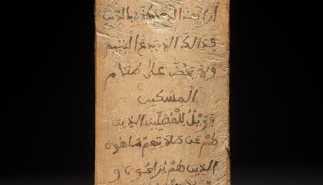 أريت الذي يكذب بالدين
فذالك الذي يدع اليتيم
ولا يحض على طعام
المسكين
فويل للمصلين الذين
هم عن صلاتهم ساهون
الذين هم يراءون و